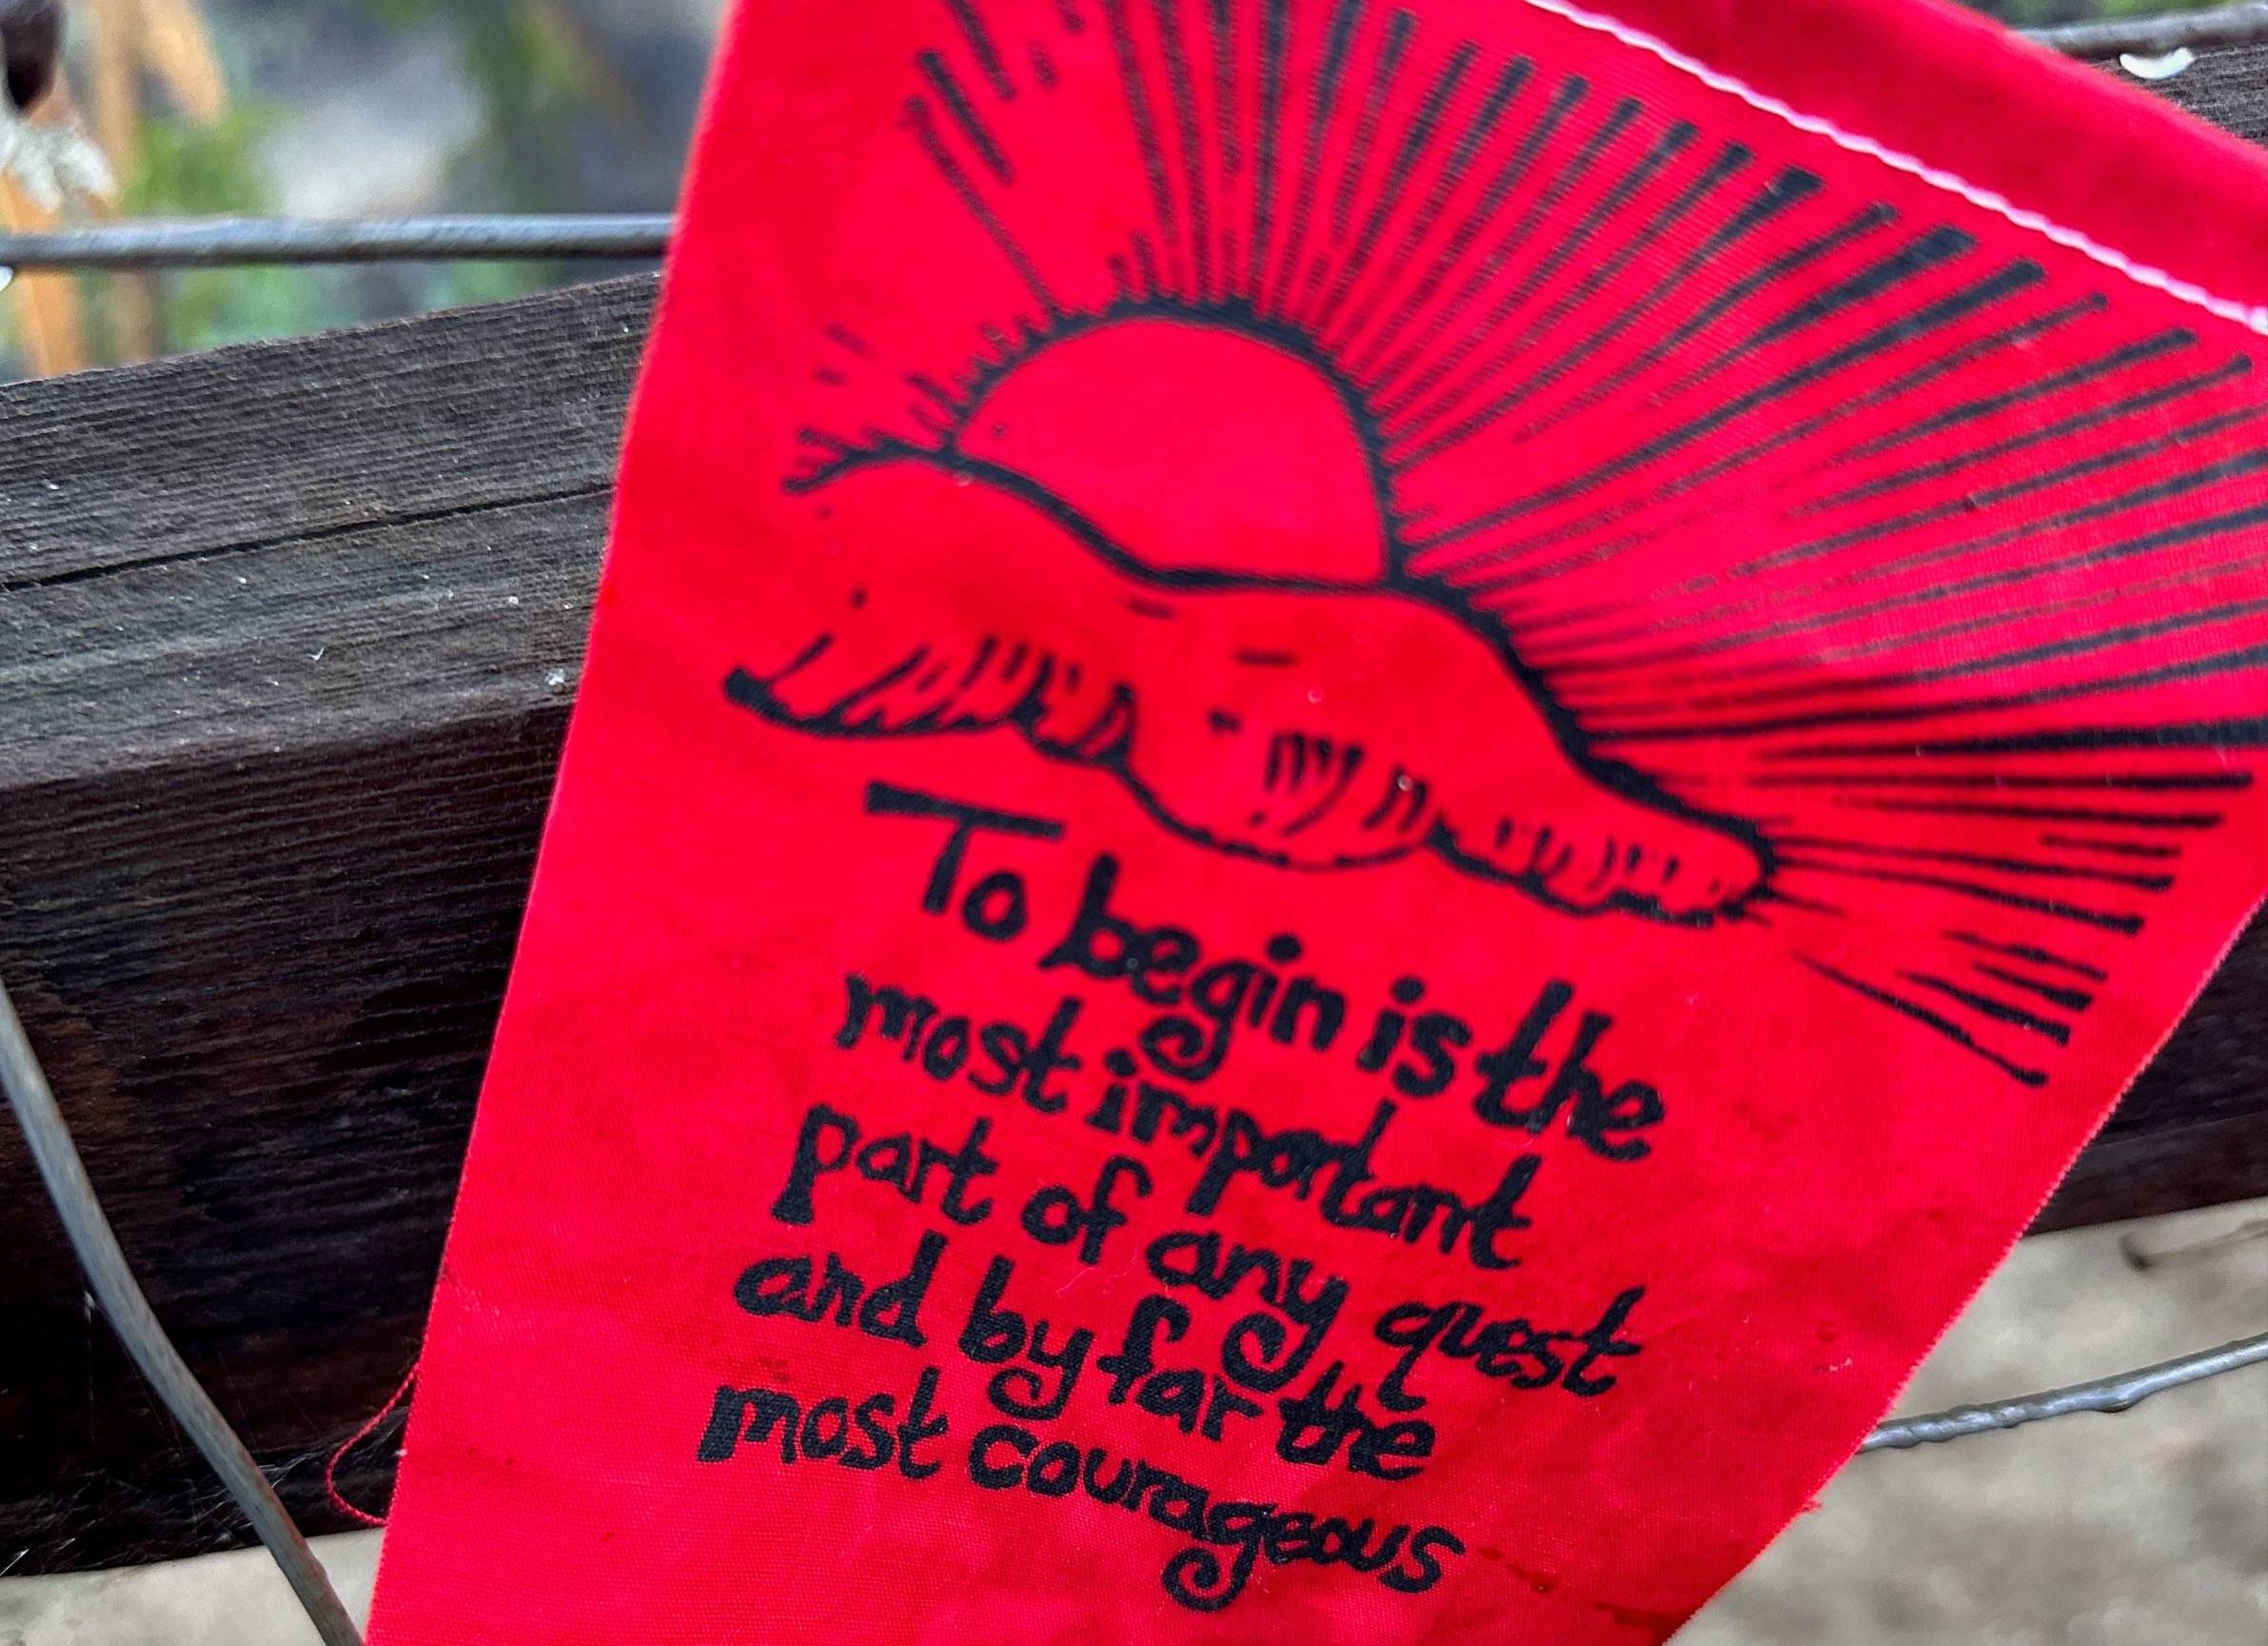 To begin is the
most important
part of any quest
and by far the
most courageous